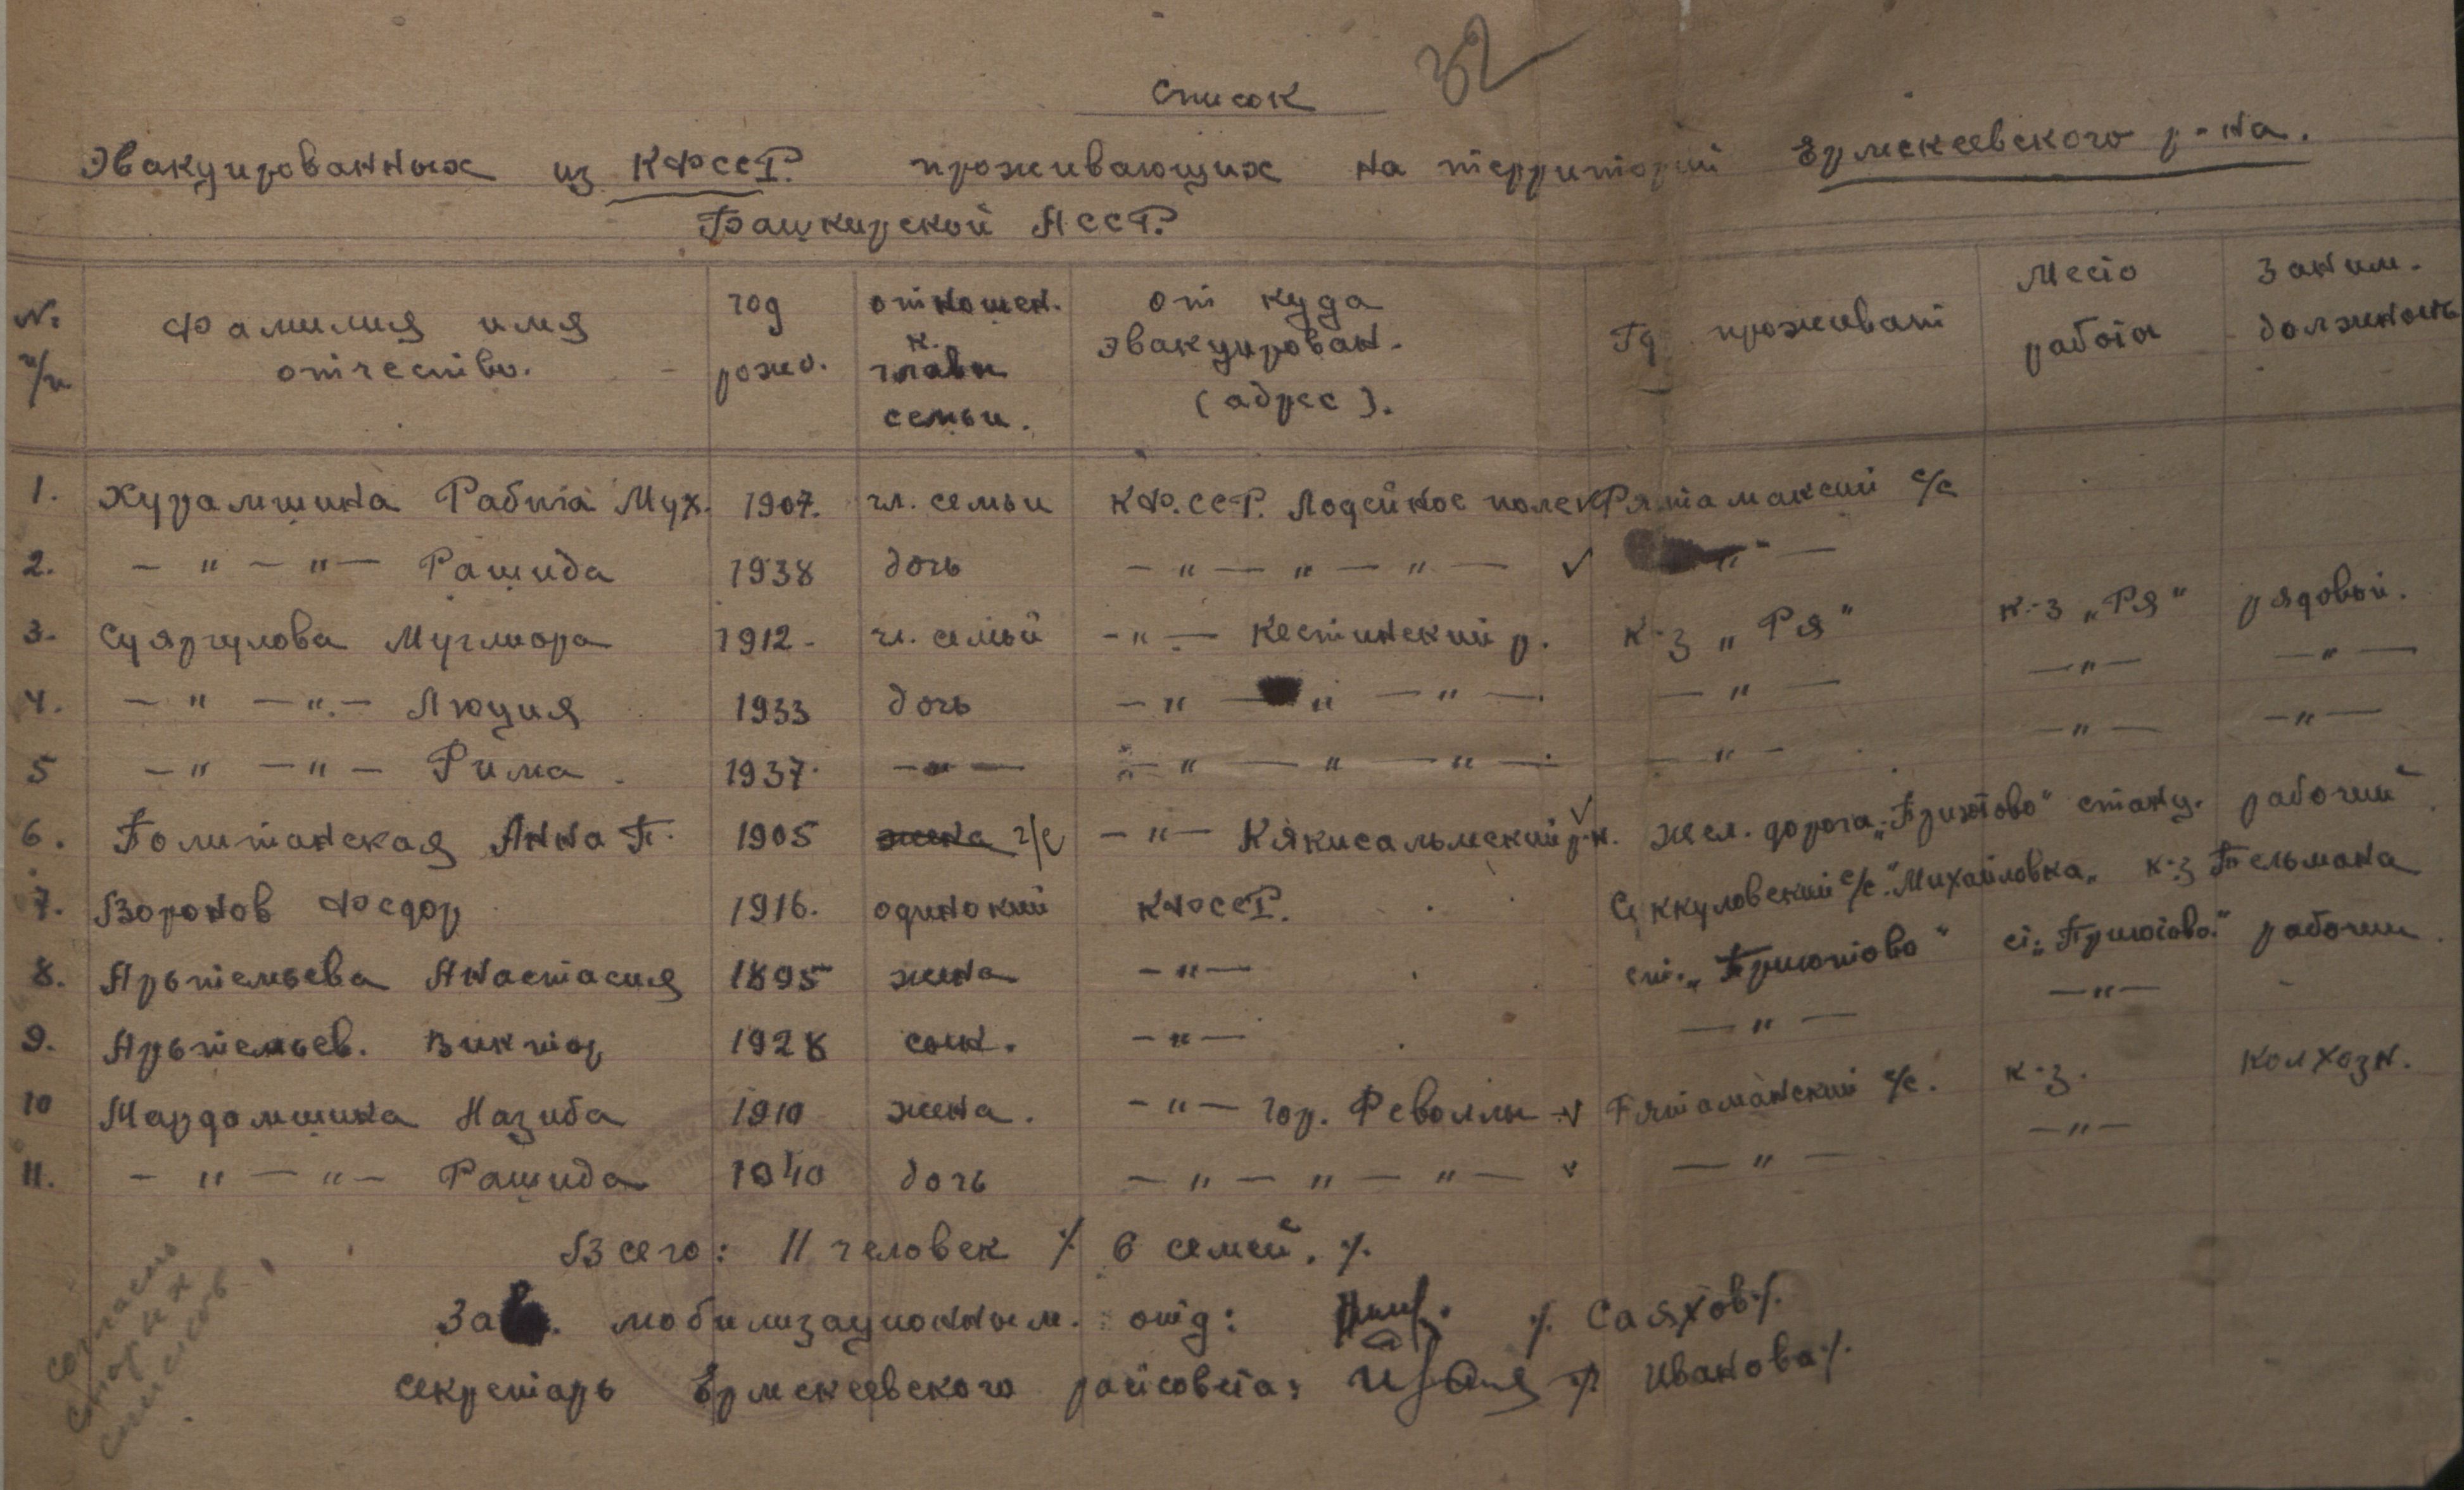 32
Список
Эвакуированных из КФССР. проживающих на территорий Ермекеевского р-на.
Башкирской АССР.
№ п/п Фамилия имя отчество. год рожд. отношен. к. главы семьи. от куда эвакуирован. (адрес). Гд проживает Место работы Заним. должность
1. Хурамшина Рабига Мух. 1907. гл. семьи КФ.ССР. Лодейное поле Рятамакский с/с
2. — " — " — Рашида 1938 дочь — " — " — " — ✓ — " —
3. Суяргулова Муглиора 1912. гл. семьй — " — Кестинский р. к-з „Ря" к-з „Ря" рядовой.
4. — " — " — Люция 1933 дочь — " — " — " — — " — — " — — " —
5 — " — " — Рима. 1937. — " — — " — " — " — — " — — " — — " —
6. Политанская Анна П. 1905 жена г/с — " — Кякисальмский р-н. ✓ жел. дорога „Приютово" станц. рабочий
7. Воронов Федор 1916. одинокий КФССР. Суккуловский с/с. "Михайловка„ к-з Тельмана
8. Арьтемьева Анастасия 1895 жена — " — ст. „Приютово" ст. „Приютово." рабочий
9. Арьтемьев. Виктор 1928 сын. — " — — " — — " —
10 Мардомшина Назиба 1910 жена. — " — гор. Револлы ✓ Рятаманский с/с. к-з. колхозн.
11. — " — " — Рашида 1940 дочь — " — " — " — ✓ — " — — " —
Всего: 11 человек /. 6 семей. /.
Зав. мобилизационным. отд: /. Саяхов /.
Секретарь Ермекеевского райсовета: /. Иванова /.
согласно
старых
списков